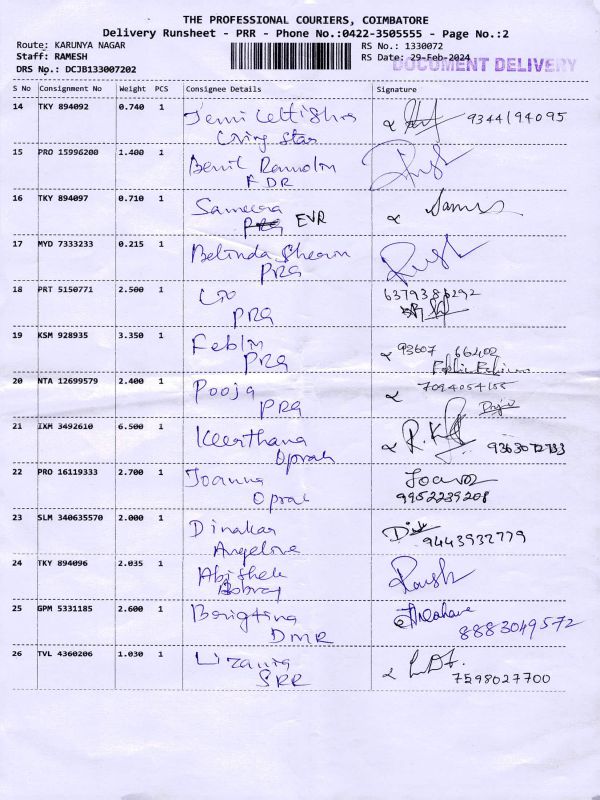 THE PROFESSIONAL COURIERS, COIMBATORE
Delivery Runsheet - PRR - Phone No.:0422-3505555 - Page No.:2
Route: KARUNYA NAGAR
Staff: RAMESH
DRS No.: DCJB133007202
RS No.: 1330072
RS Date: 29-Feb-2024
DOCUMENT DELIVERY
S No Consignment No Weight PCS Consignee Details Signature
14 TKY 894092 0.740 1 Jemi 9344194095
Star
15 PRO 15996200 1.400 1
FDR
16 TKY 894097 0.710 1 Sameera
EVR
17 MYD 7333233 0.215 1 Belinda
PRG
18 PRT 5150771 2.500 1
PRG
19 KSM 928935 3.350 1 Feblin 93607 66402
PRG
20 NTA 12699579 2.400 1 Pooja
PRG
21 IXM 3492610 6.500 1 Keerthana R.K
Oprah
22 PRO 16119333 2.700 1 Joanna
Oprah 9952239208
23 SLM 340635570 2.000 1 Dinakar
Angelove 9443932779
24 TKY 894096 2.035 1 Abishek
25 GPM 5331185 2.600 1
DMR 8883049572
26 TVL 4360206 1.030 1
SRR 7598027700